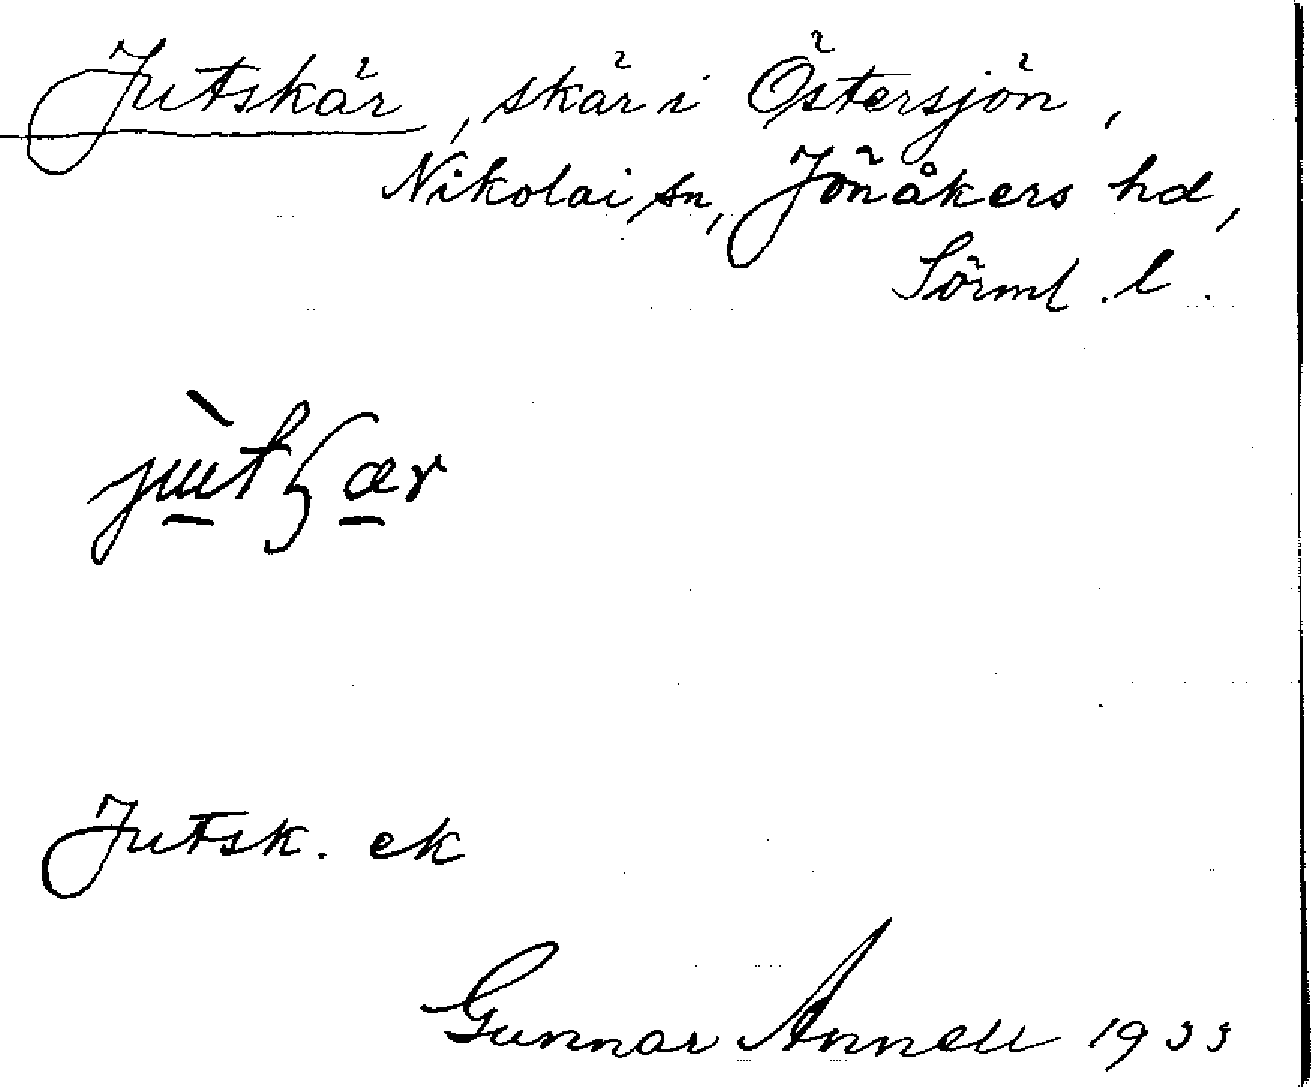 Jutskär, skär i Östersjön,
Nikolai sn, Jönåkers hd,
Sörml. l.
Jutsk. ek
Gunnar Annell 1933